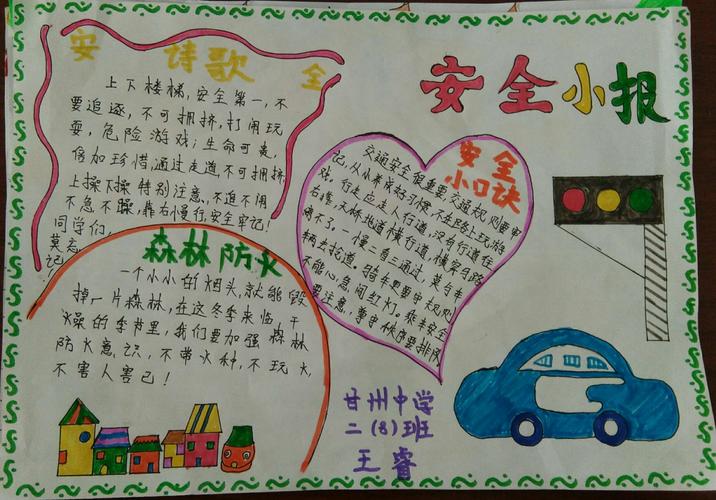 安全小报
安 诗歌 全
上下楼梯,安全第一,不
要追逐,不可拥挤,打闹玩
耍,危险游戏;生命可贵,
倍加珍惜,通过走道,不可拥挤,
上操下操特别注意,不追不闹
不急不躁,靠右慢行,安全牢记!
同学们,
莫忘
记!
安全
小口诀
交通安全很重要,交通规则要牢
记,从小养成好习惯,不在路上玩游
戏。行走应走人行道,没有行道往
右靠,天桥地道横行道,横穿马路
离不了。一慢二看三通过,莫与车
辆去抢道。骑车更要守规则,
不能心急闯红灯。乘车安全
要注意,遵守秩序要排队
森林防火
一个小小的烟头,就能毁
掉一片森林,在这冬季来临,干
燥的季节里,我们要加强森林
防火意识,不带火种,不玩火,
不害人害己!
甘州中学
二(8)班
王睿